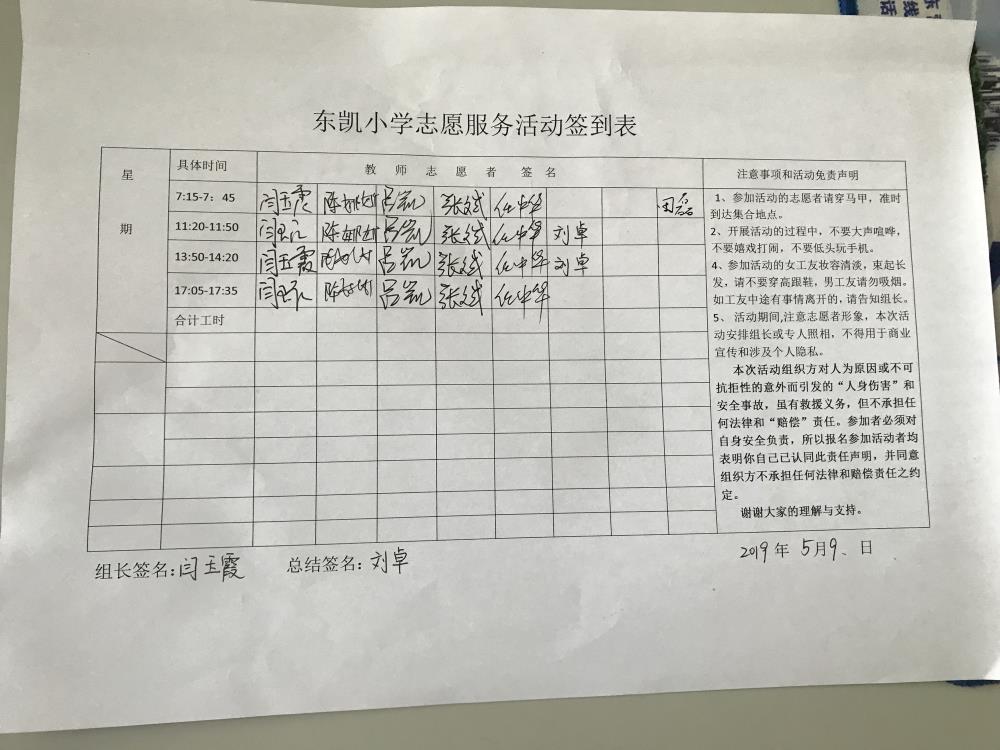 东凯小学志愿服务活动签到表
星
期
具体时间 教 师 志 愿 者 签 名
7:15-7：45 闫玉霞 吕凯 张斌 任中华 田磊
11:20-11:50 闫玉霞 吕凯 张斌 任中华 刘卓
13:50-14:20 闫玉霞 吕凯 张斌 任中华 刘卓
17:05-17:35 闫玉霞 吕凯 张斌 任中华
合计工时
注意事项和活动免责声明
1、参加活动的志愿者请穿马甲，准时
到达集合地点。
2、开展活动的过程中，不要大声喧哗，
不要嬉戏打闹，不要低头玩手机。
4、参加活动的女工友妆容清淡，束起长
发，请不要穿高跟鞋，男工友请勿吸烟。
如工友中途有事情离开的，请告知组长。
5、 活动期间,注意志愿者形象，本次活
动安排组长或专人照相，不得用于商业
宣传和涉及个人隐私。
本次活动组织方对人为原因或不可
抗拒性的意外而引发的“人身伤害”和
安全事故，虽有救援义务，但不承担任
何法律和“赔偿”责任。参加者必须对
自身安全负责，所以报名参加活动者均
表明你自己已认同此责任声明，并同意
组织方不承担任何法律和赔偿责任之约
定。
谢谢大家的理解与支持。
组长签名:闫玉霞 总结签名: 刘卓
2019 年 5月9、日